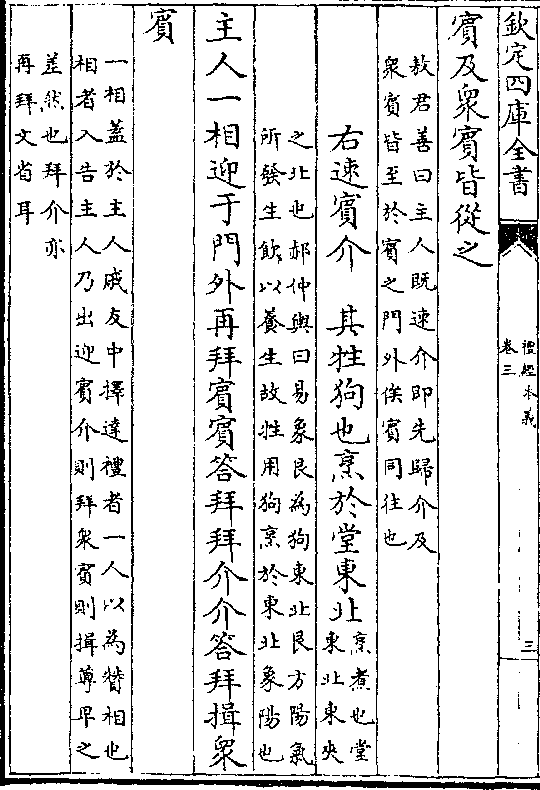 欽定四庫全書
禮經本義
卷三
三
賓及衆賓皆從之
敖君善曰主人既速介即先歸介及
衆賓皆至於賓之門外俟賓同往也
右速賓介　其牲狗也烹於堂東北
烹煮也堂
東北東夾
之北也郝仲輿曰易象艮為狗東北艮方陽氣
所發生飲以養生故牲用狗烹於東北象陽也
主人一相迎于門外再拜賓賓答拜拜介介答拜揖衆
賓
一相葢於主人戚友中擇達禮者一人以為贊相也
相者入告主人乃出迎賓介則拜衆賓則揖尊卑之
差然也拜介亦
再拜文省耳